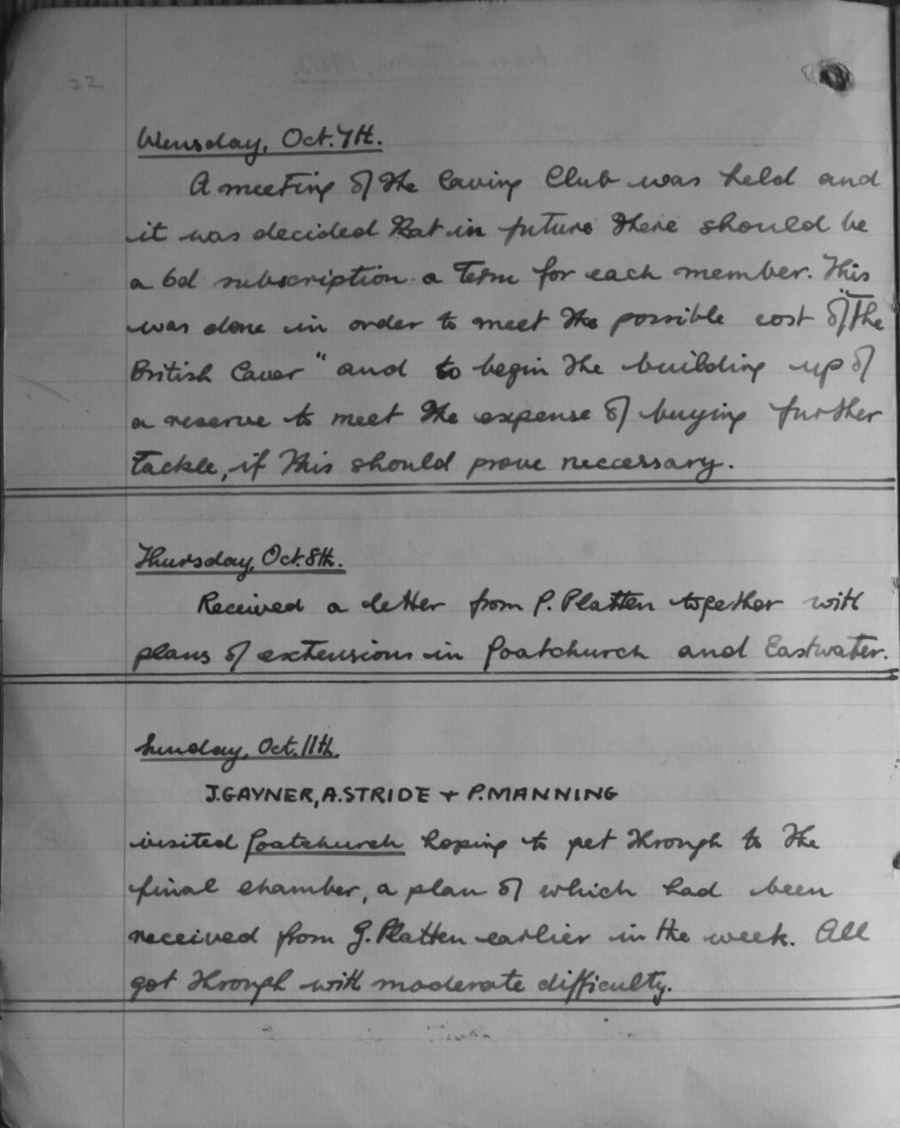 22
Wensday, Oct. 7th.
A meeting of the Caving Club was held and
it was decided that in future there should be
a 6d subscription a term for each member. This
was done in order to meet the possible cost of "The
British Caver" and to begin the building up of
a reserve to meet the expense of buying further
tackle, if this should prove neccessary.
Thursday, Oct. 8th.
Received a letter from G. Platten together with
plans of extensions in Goatchurch and Eastwater.
Sunday, Oct. 11th.
J. GAYNER, A. STRIDE + P. MANNING
visited Goatchurch hoping to get through to the
final chamber, a plan of which had been
received from G. Platten earlier in the week. All
got through with moderate difficulty.